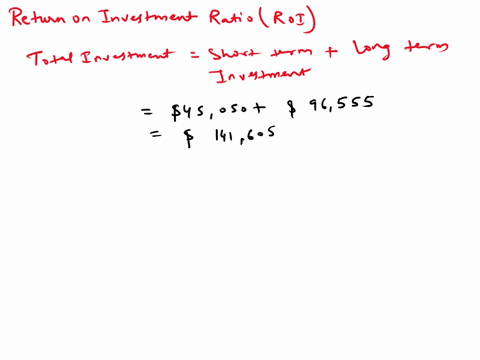 Return on Investment Ratio (ROI)
Total Investment = Short term + Long term
Investment
= $45,050 + $ 96,555
= $ 141,605